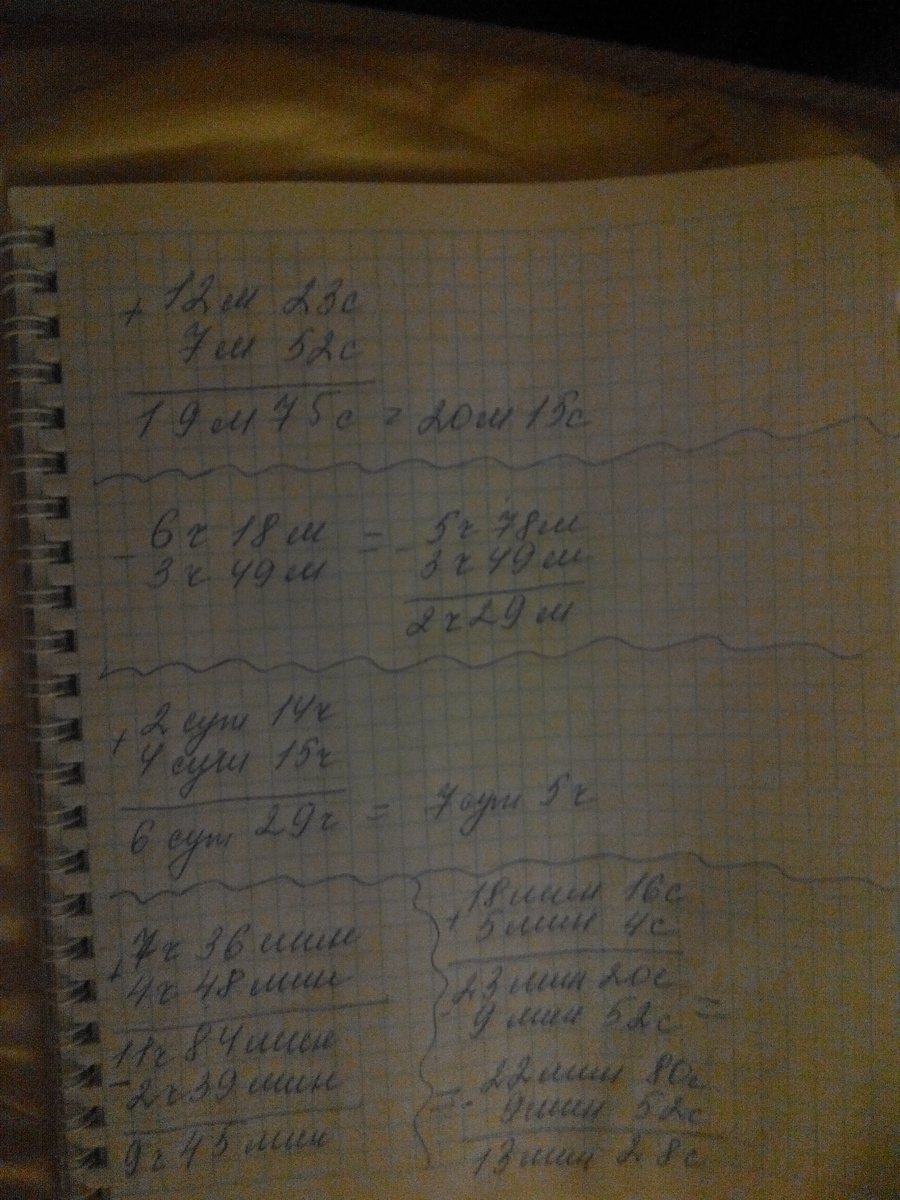 + 12м 23с
7м 52с
19м 75с = 20м 15с
- 6ч 18м = - 5ч 78м
3ч 49м 3ч 49м
2ч 29м
+ 2 сут 14ч
4 сут 15ч
6 сут 29ч = 7 сут 5ч
+ 7ч 36 мин
4ч 48 мин
11ч 84 мин
- 2ч 39 мин
9ч 45 мин
+ 18 мин 16с
5 мин 4с
- 23 мин 20с =
9 мин 52с
= - 22 мин 80с
9 мин 52с
13 мин 28с